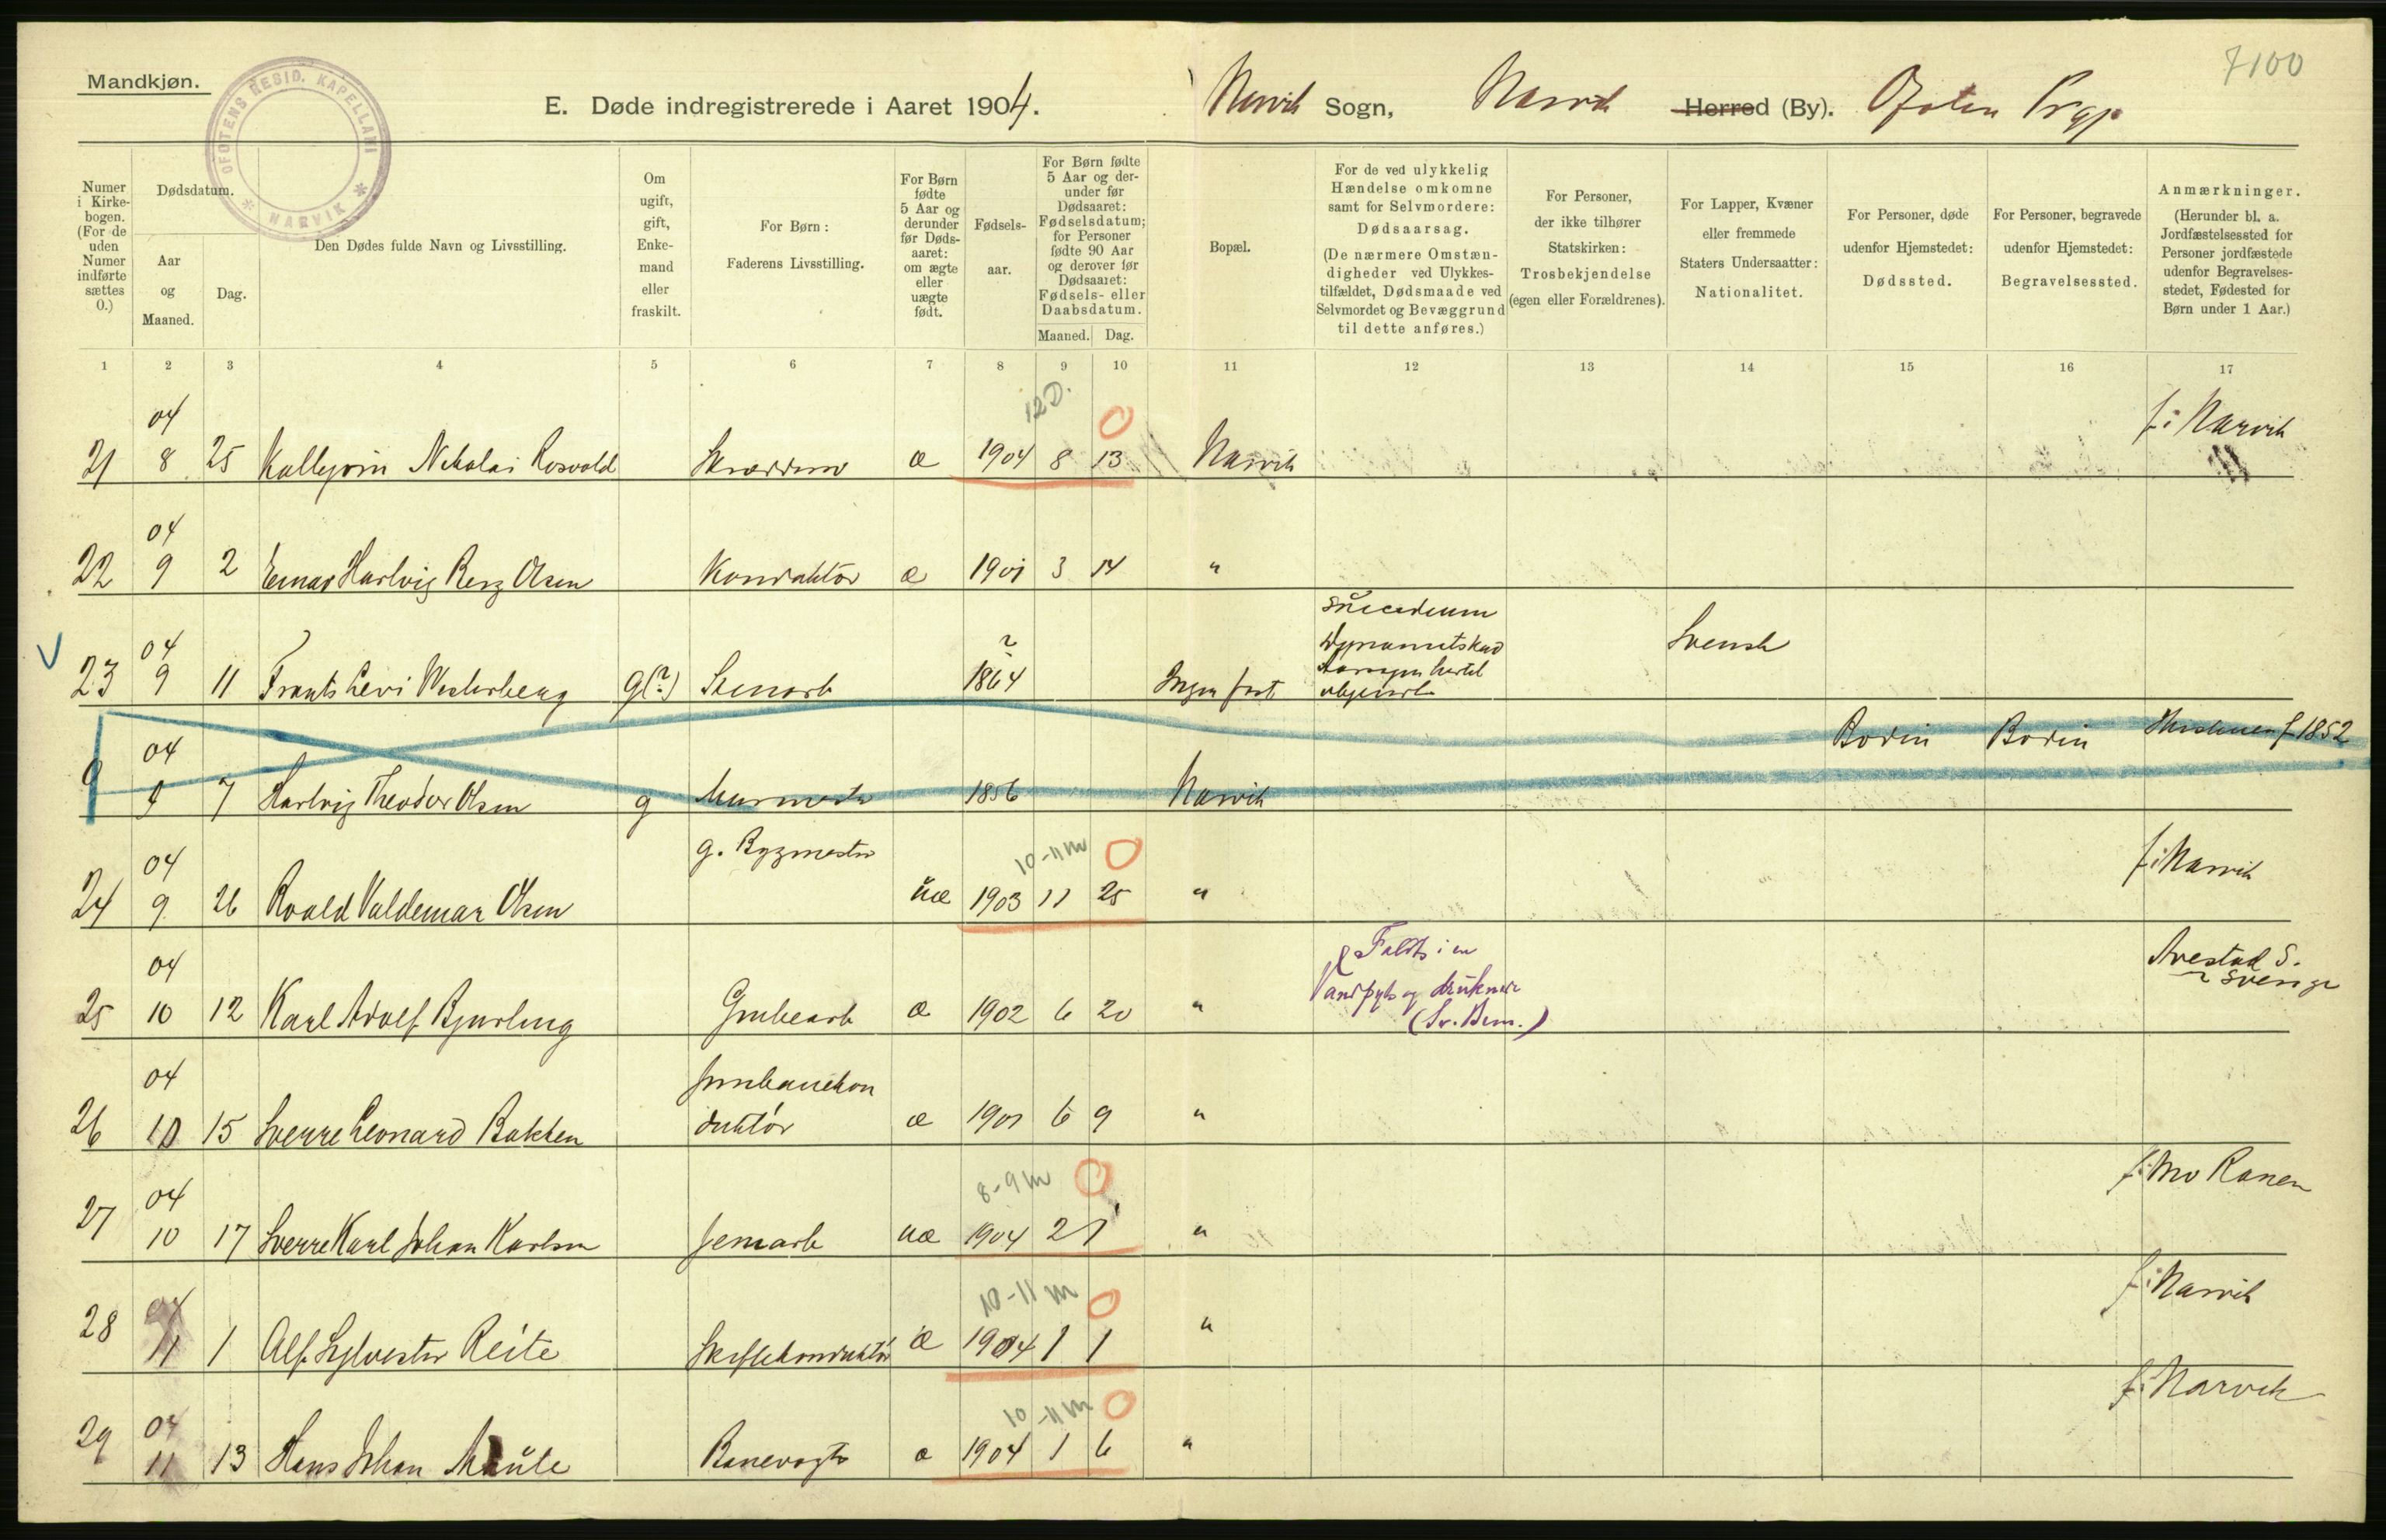 Mandkjøn.
OFOTENS RESID. KAPELLANI * NARVIK *
7100
E. Døde indregistrerede i Aaret 1904. Narvik Sogn, Narvik Herred (By). Ofoten Prgj.
Numer i Kirkebogen. (For de uden Numer indførte sættes 0.)
Dødsdatum.
Aar og Maaned.
Dag.
Den Dødes fulde Navn og Livsstilling.
Om ugift, gift, Enkemand eller fraskilt.
For Børn: Faderens Livsstilling.
For Børn fødte 5 Aar og derunder før Dødsaaret: om ægte eller uægte født.
Fødselsaar.
For Børn fødte 5 Aar og derunder før Dødsaaret: Fødselsdatum; for Personer fødte 90 Aar og derover før Dødsaaret: Fødsels- eller Daabsdatum.
Maaned. Dag.
Bopæl.
For de ved ulykkelig Hændelse omkomne samt for Selvmordere: Dødsaarsag. (De nærmere Omstændigheder ved Ulykkestilfældet, Dødsmaade ved Selvmordet og Bevæggrund til dette anføres.)
For Personer, der ikke tilhører Statskirken: Trosbekjendelse (egen eller Forældrenes).
For Lapper, Kvæner eller fremmede Staters Undersaatter: Nationalitet.
For Personer, døde udenfor Hjemstedet: Dødssted.
For Personer, begravede udenfor Hjemstedet: Begravelsessted.
Anmærkninger. (Herunder bl. a. Jordfæstelsessted for Personer jordfæstede udenfor Begravelsesstedet, Fødested for Børn under 1 Aar.)
1 2 3 4 5 6 7 8 9 10 11 12 13 14 15 16 17
04 12 D. 0 f: Narvik
21 8 25 Nikolai Rosvold æ 1904 8 13 Narvik
04
22 9 2 Einar Hartvig Berg Olsen Konduktør æ 1901 3 14 "
04 ? Svensk
23 9 11 Frants Levi Westerberg g(?) Stenarb 1864 Ingen fast
04 Bodin Bodin f 1852
9 7 Hartvig Theodor Olsen g Murmester 1856 Narvik
04 g. Bygmester 10-11 m 0 f: Narvik
24 9 26 Roald Valdemar Olsen uæ 1903 11 25 "
04 Faldt i en Avestad S. Sverige
25 10 12 Karl Adolf Bjurling Grubearb æ 1902 6 20 " og druknede (Sv. Bem.)
04 Jernbanekon
26 10 15 Sverre Leonard Bakken duktør æ 1901 6 9 "
04 8-9 m 0 f: Mo Ranen
27 10 17 Sverre Karl Johan Karlsen Jernarb uæ 1904 2 1 "
04 10-11 m 0 f: Narvik
28 11 1 Alf Sylvester Reite Skiftekonduktør æ 1904 1 1 "
04 10-11 m 0 f: Narvik
29 11 13 Hans Johan Banevogter æ 1904 1 6 "